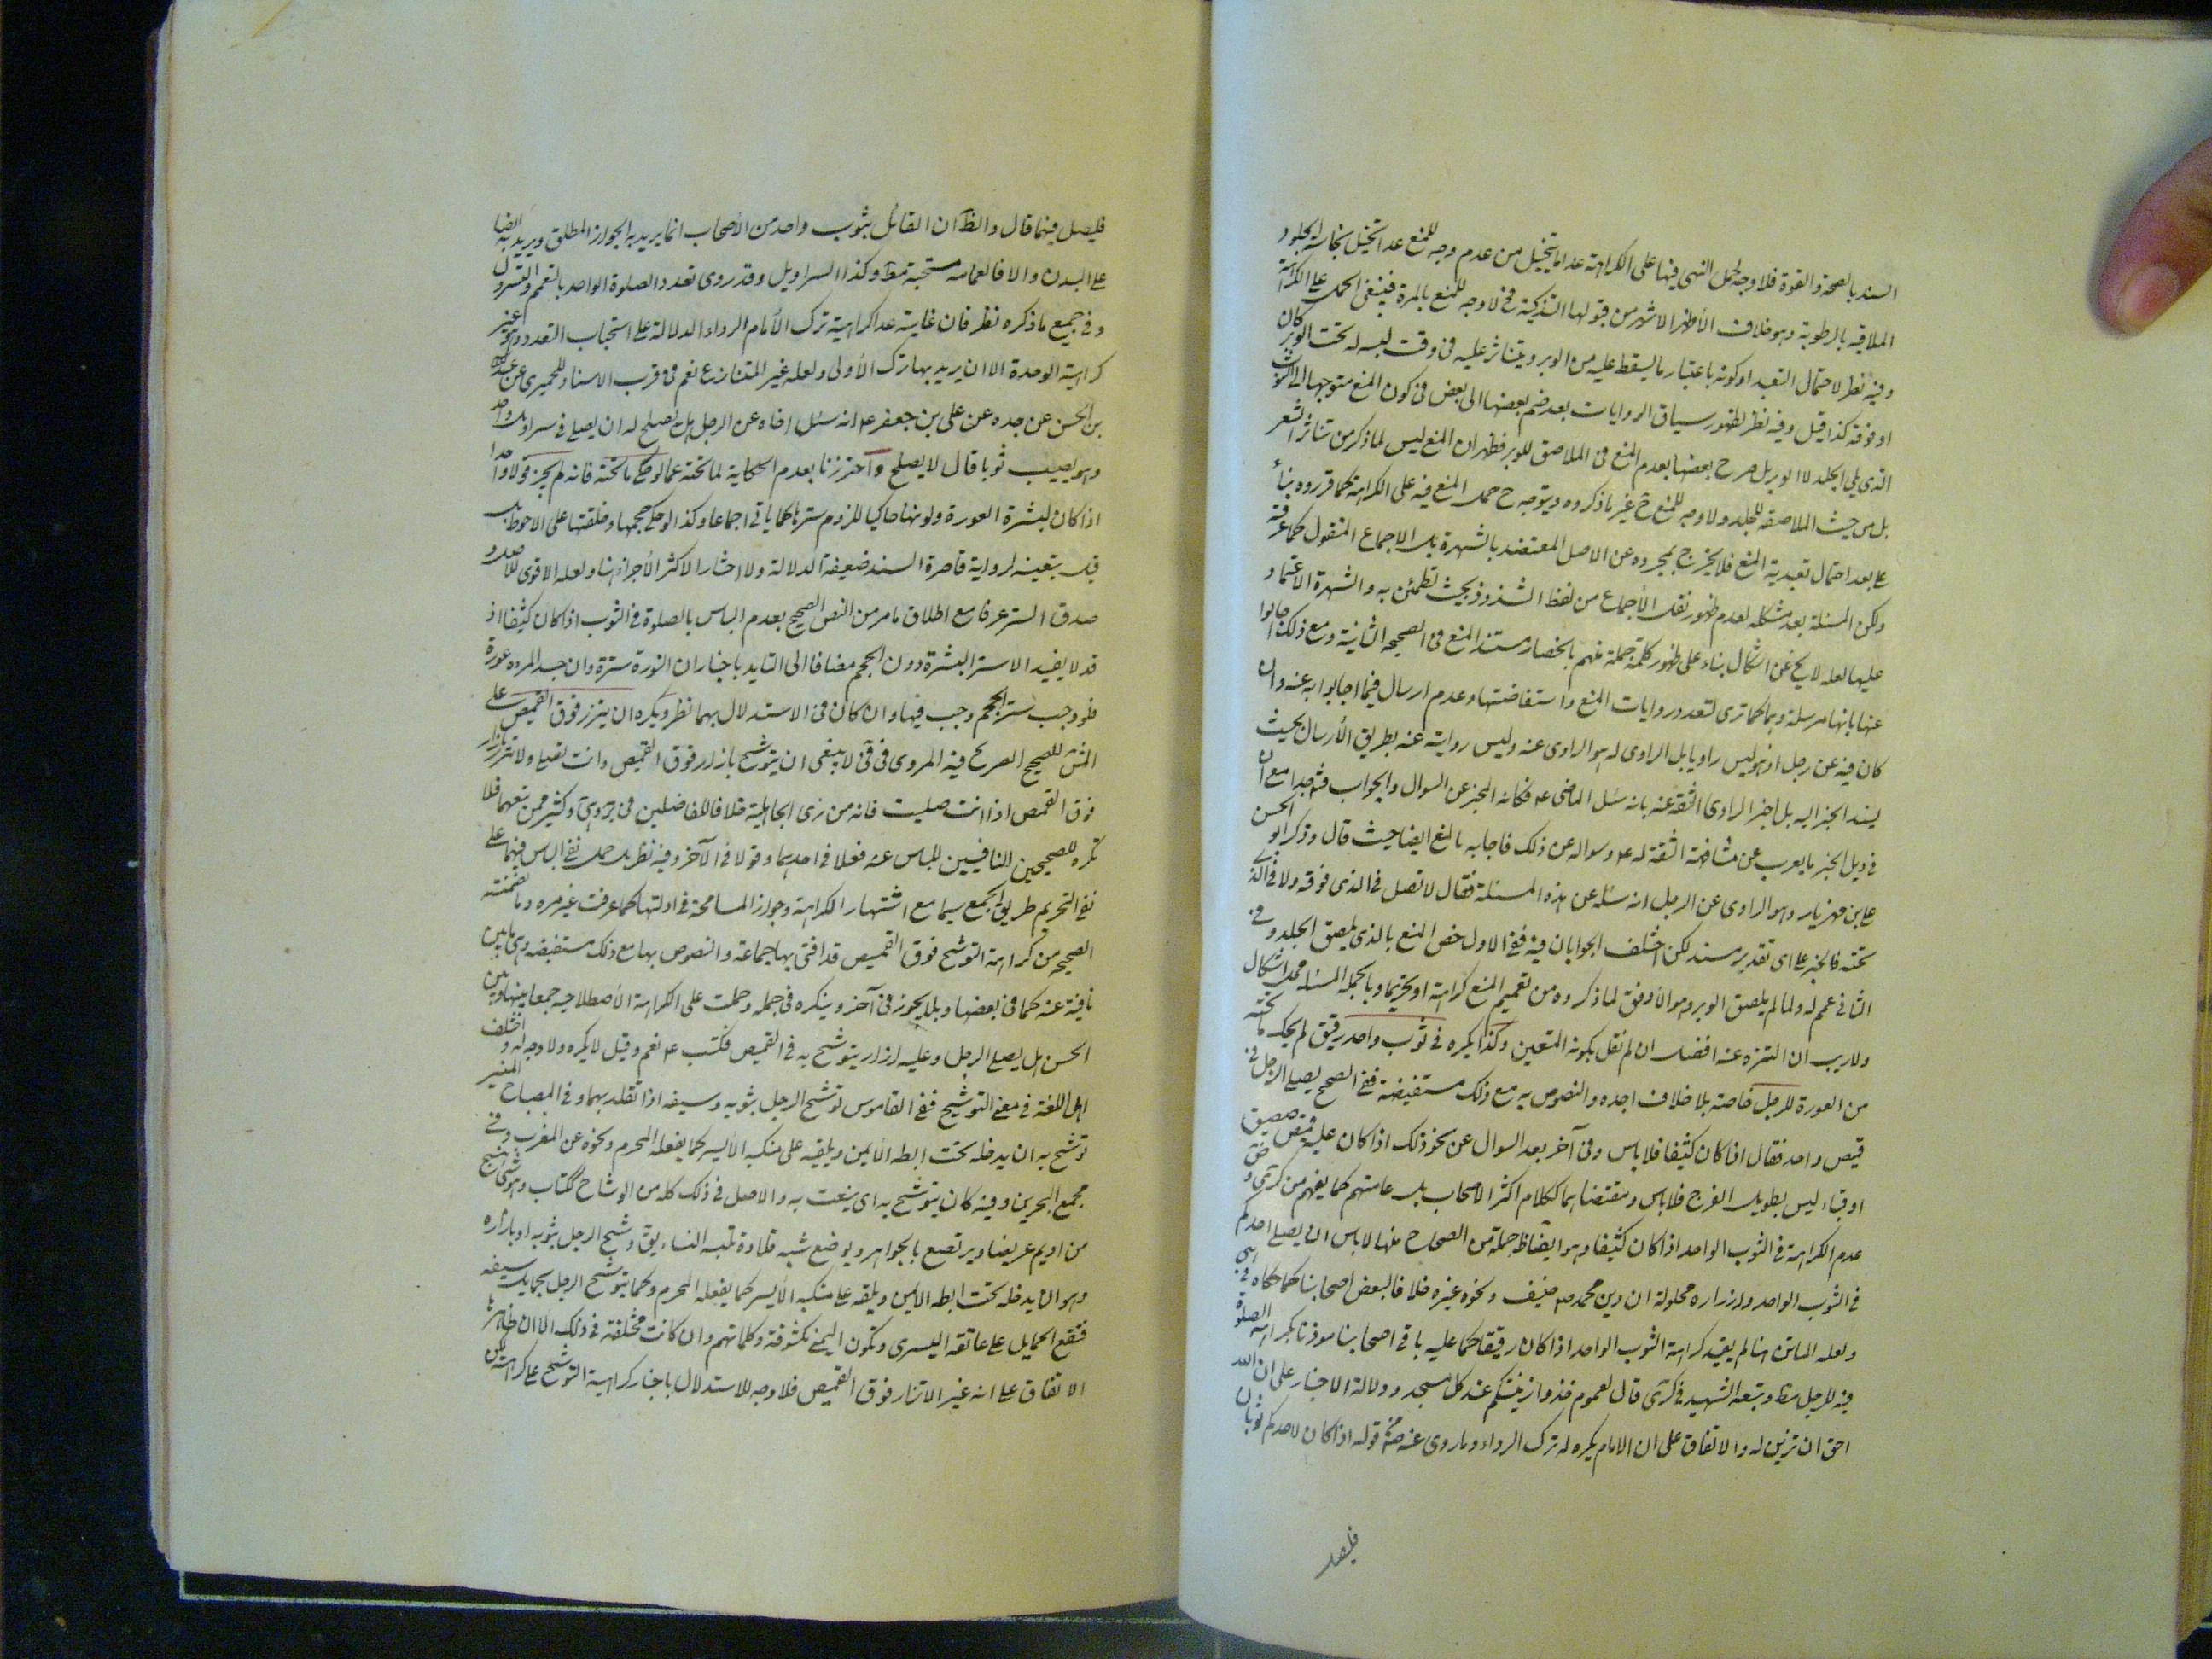 السند بالصحة والقوة فلا وجه لحمل النهى فيها على الكراهة عدا ما يتخيل من عدم وجه للمنع عدا تخيل نجاسة الجلود
الملاقيه بالرطوبة وهو خلاف الأظهر الاشهر من قبولها التذكية فح لا وجه للمنع بالمرة فينبغى الحمل على الكراهة
وفيه نظر لاحتمال التعبد او كونه باعتبار ما يسقط عليه من الوبر ويتناثر عليه فى وقت لبسه له تحت الوبر كان
او فوقه كذا قيل وفيه نظر لظهور سياق الروايات بعد ضم بعضها الى بعض فى كون المنع متوجها الى الثوب
الذى يلى الجلد لا الوبر بل صرح بعضها بعدم المنع فى الملاصق للوبر فظهر ان المنع ليس لما ذكر من تناثر الشعر
بل من حيث الملاصقة للجلد ولا وجه للمنع ح غير ما ذكروه ويتوجه ح حمل المنع فيه على الكراهة كما قرروه بناء
على بعد احتمال تعبدية المنع فلا يخرج بمجرده عن الاصل المعتضد بالشهرة بل الاجماع المنقول كما عرفته
ولكن المسئلة بعد مشكله لعدم ظهور نقل الأجماع من لفظ الشذوذ بحيث تطمئن به والشهرة الاعتماد
عليها لعله لا يخ عن اشكال بناء على ظهور كلمة جملة منهم بانحصار مستند المنع فى الصحيحة الثانية ومع ذلك اجابوا
عنها بانها مرسلة وهما كما ترى لتعدد روايات المنع واستفاضتها وعدم ارسال فيما اجابوا به عنه وان
كان فيه عن رجل اذ هو ليس راويا بل الراوى له هو الراوى عنه وليس روايته عنه بطريق الأرسال بحيث
يسند الخبر اليه بل اخبر الراوى الثقة عنه بانه سئل الماضى ع فكانه المخبر عن السوال والجواب فتدبر جدا مع ان
فى ذيل الخبر ما يعرب عن مشافهة الثقة له ع وسواله عن ذلك فاجابه بالمنع ايضا حيث قال وذكر ابو الحسن
على بن مهزيار وهو الراوى عن الرجل انه سئله عن هذه المسئلة فقال لا تصل فى الذى فوقه ولا فى الذى
تحته فالخبر على اى تقدير مسند لكن اختلف الجوابان فيه ففى الاول خص المنع بالذى يلصق الجلد وفى
الثانى عمم له ولما لم يلصق الوبر وهو الأوفق لما ذكروه من تعميم المنع كراهة او تحريما وبالجملة المسئله محل اشكال
ولا ريب ان التنزه عنه افضل ان لم نقل بكونه المتعين وكذا يكره فى ثوب واحد رقيق لم يحك ما تحته
من العورة للرجل خاصة بلا خلاف اجده والنصوص به مع ذلك مستفيضة ففى الصحيح يصلى الرجل فى
قميص واحد فقال اذا كان كثيفا فلا باس وفى آخر بعد السوال عن نحو ذلك اذا كان عليه قميص صفيق
او قباء ليس بطويل الفرج فلا باس ومقتضاهما ككلام اكثر الاصحاب بل عامتهم كما يفهم من كرى وض
عدم الكراهة فى الثوب الواحد اذا كان كثيفا وهو ايضا ظ جملة من الصحاح منها لا باس ان يصلى احدكم
فى الثوب الواحد وازراره محلولة ان دين محمد ص حنيف ونحوه غيره خلافا لبعض اصحابنا كما حكاه فى هى
ولعله الماتن هنا لم يقيد كراهة الثوب الواحد اذا كان رقيقا كما عليه باقى اصحابنا موذنا بكراهة الصلوة
فيه للرجل مط وتبعه الشهيد فى كرى قال لعموم خذوا زينتكم عند كل مسجد ودلالة الاخبار على ان الله
احق ان تزين له والاتفاق على ان الامام يكره له ترك الرداء وما روى عنه ص قوله اذا كان لاحدكم ثوبان
فليصل
فليصل فيهما قال والظ ان القائل بثوب واحد من الأصحاب انما يريد به الجواز المطلق ويريد به ايضا
على البدن والا فالعمامه مستحبة مط وكذا السراويل وقد روى تعدد الصلوة الواحد بالتعمم والتسرول
وفى جميع ما ذكره نظر فان غايته عدا كراهية ترك الأمام الرداء الدلالة على استحباب التعدد وهو غير
كراهية الوحدة الا ان يريد بها ترك الأولى ولعله غير المتنازع نعم فى قرب الاسناد للحميرى عن عبدالله
بن الحسن عن جده عن على بن جعفر ع انه سئل اخاه عن الرجل هل يصلح له ان يصلى فى سراويل واحد
وهو يصيب ثوبا قال لا يصلح واحترزنا بعدم الحكاية لما تحته عما لو حكى ما تحته فانه لم يجز قولا واحدا
اذا كان لبشرة العورة ولونها حاكيا للزوم سترها كما ياتى اجماعا وكذا لو حكى حجمها وخلقتها على الاحوط بل
قيل بتعينه لرواية قاصرة السند ضعيفة الدلالة ولا اختار الاكثر الأجزاء هنا ولعله الاقوى للاصل و
صدق الستر عرفا مع اطلاق ما مر من النص الصحيح بعدم الباس بالصلوة فى الثوب اذا كان كثيفا اذ
قد لا يفيد الا ستر البشرة دون الحجم مضافا الى التايد باخبار ان النورة سترة وان جسد المرءه عورة
فلو وجب ستر الحجم وجب فيها وان كان فى الاستدلال بهما نظر ويكره ان يتزر فوق القميص على
المش للصحيح الصريح فيه المروى فى فى لا ينبغى ان يتوشح بازار فوق القميص وانت تصلى ولا تتزر بازار
فوق القميص اذا انت صليت فانه من زى الجاهلية خلافا للفاضلين وكثير ممن تبعهما فلا
تكره للصحيحين النافيين للباس عنه فعلا فى احدهما وقولا فى الآخر وفيه نظر بل حمل نفى الباس فيهما على
نفى التحريم طريق الجمع سيما مع اشتهار الكراهة وجواز المسامحة فى ادلتها كما عرفت غير مره وما تضمنته
الصحيح من كراهة التوشح فوق القميص قد افتى بها جماعة والنصوص بها مع ذلك مستفيضه وهى ما بين
نافية عنه كما فى بعضها وبلا يجوز فى آخر وبتكره فى جمله وحملت على الكراهة الأصطلاحيه جمعا بينها وبين
الحسن هل يصلى الرجل وعليه ازار يتوشح به فى القميص فكتب ع نعم وقيل لا يكره ولا وجه له واختلف
اهل اللغة فى معنى التوشيح ففى القاموس توشح الرجل بثوبه وسيفه اذا تقلد بهما وفى المصباح المنير
توشح به ان يدخله تحت ابطه الأيمن ويلقيه على منكبه الأيسر كما يفعله المحرم ونحوه عن المغرب وفى
مجمع البحرين وفيه كان يتوشح به اى يتغشى به والاصل فى ذلك كله من الوشاح ككتاب وهو شى ينسج
من اديم عريضا ويرصع بالجواهر ويوضع شبه قلادة تلبسه النساء يق وشح الرجل بثوبه او بازاره
وهو ان يدخله تحت ابطه الايمن ويلقه على منكبه الأيسر كما يفعله المحرم وكما يتوشح الرجل بحمايل سيفه
فتقع الحمايل على عاتقه اليسرى وتكون اليمنى مكشوفة وكلماتهم وان كانت مختلفة فى ذلك الا ان ظاهرها
الاتفاق على انه غير الاتزار فوق القميص فلا وجه للاستدلال باخبار كراهية التوشح على كراهته